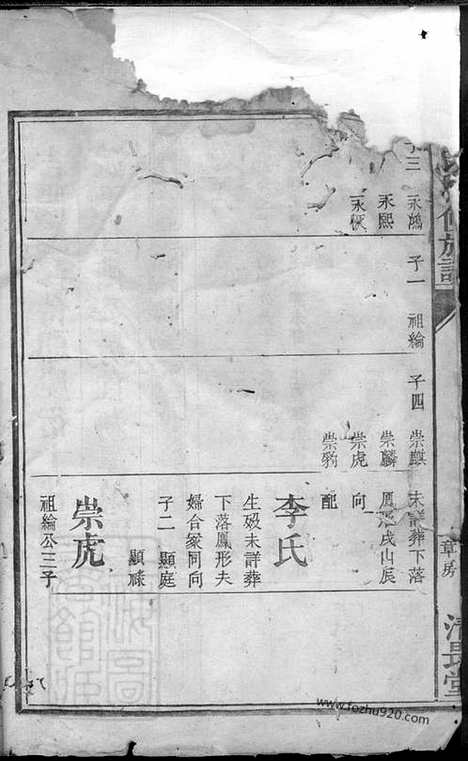 子三 永鴻
永熙
子一 祖綸
子四 崇麒
崇麟
崇虎
崇豹
未詳葬下落
鳳形戌山辰
向
配
李氏
生歿未詳葬
下落鳳形夫
婦合冢同向
子二 顯庭
顯祿
崇虎
祖綸公三子
修族譜
章房
清
堂
www.fozhu920.com